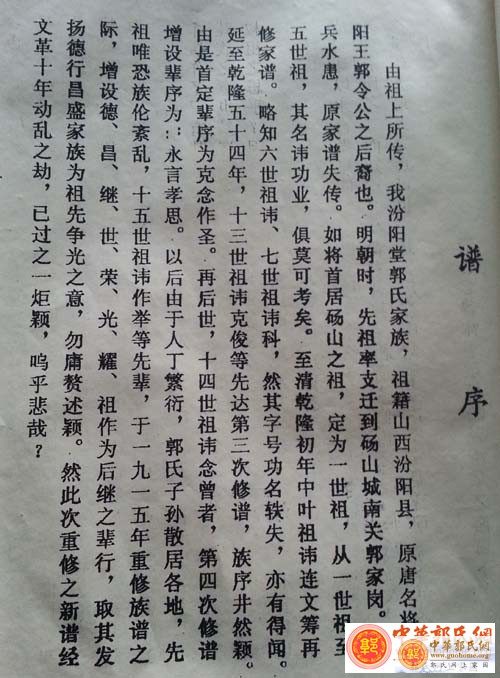 谱序
由祖上所传，我汾阳堂郭氏家族，祖籍山西汾阳县，原唐名将
阳王郭令公之后裔也。明朝时，先祖率支迁到砀山城南关郭家岗。
兵水患，原家谱失传。如将首居砀山之祖，定为一世祖，从一世祖至
五世祖，其名讳功业，俱莫可考矣。至清乾隆初年中叶祖讳连文筹再
修家谱。略知六世祖讳、七世祖讳科，然其字号功名轶失，亦有得闻。
延至乾隆五十四年，十三世祖讳克俊等先达第三次修谱，族序井然颖。
由是首定辈序为克念作圣。再后世，十四世祖讳念曾者，第四次修谱
增设辈序为：永言孝思。以后由于人丁繁衍，郭氏子孙散居各地，先
祖唯恐族伦紊乱，十五世祖讳作举等先辈，于一九一五年重修族谱之
际，增设德、昌、继、世、荣、光、耀、祖作为后继之辈行，取其发
扬德行昌盛家族为祖先争光之意，勿庸赘述颖。然此次重修之新谱经
文革十年动乱之劫，已过之一炬颖，呜乎悲哉？
中华郭氏网
中华郭氏网
www.guohome.org
郭氏网上家园